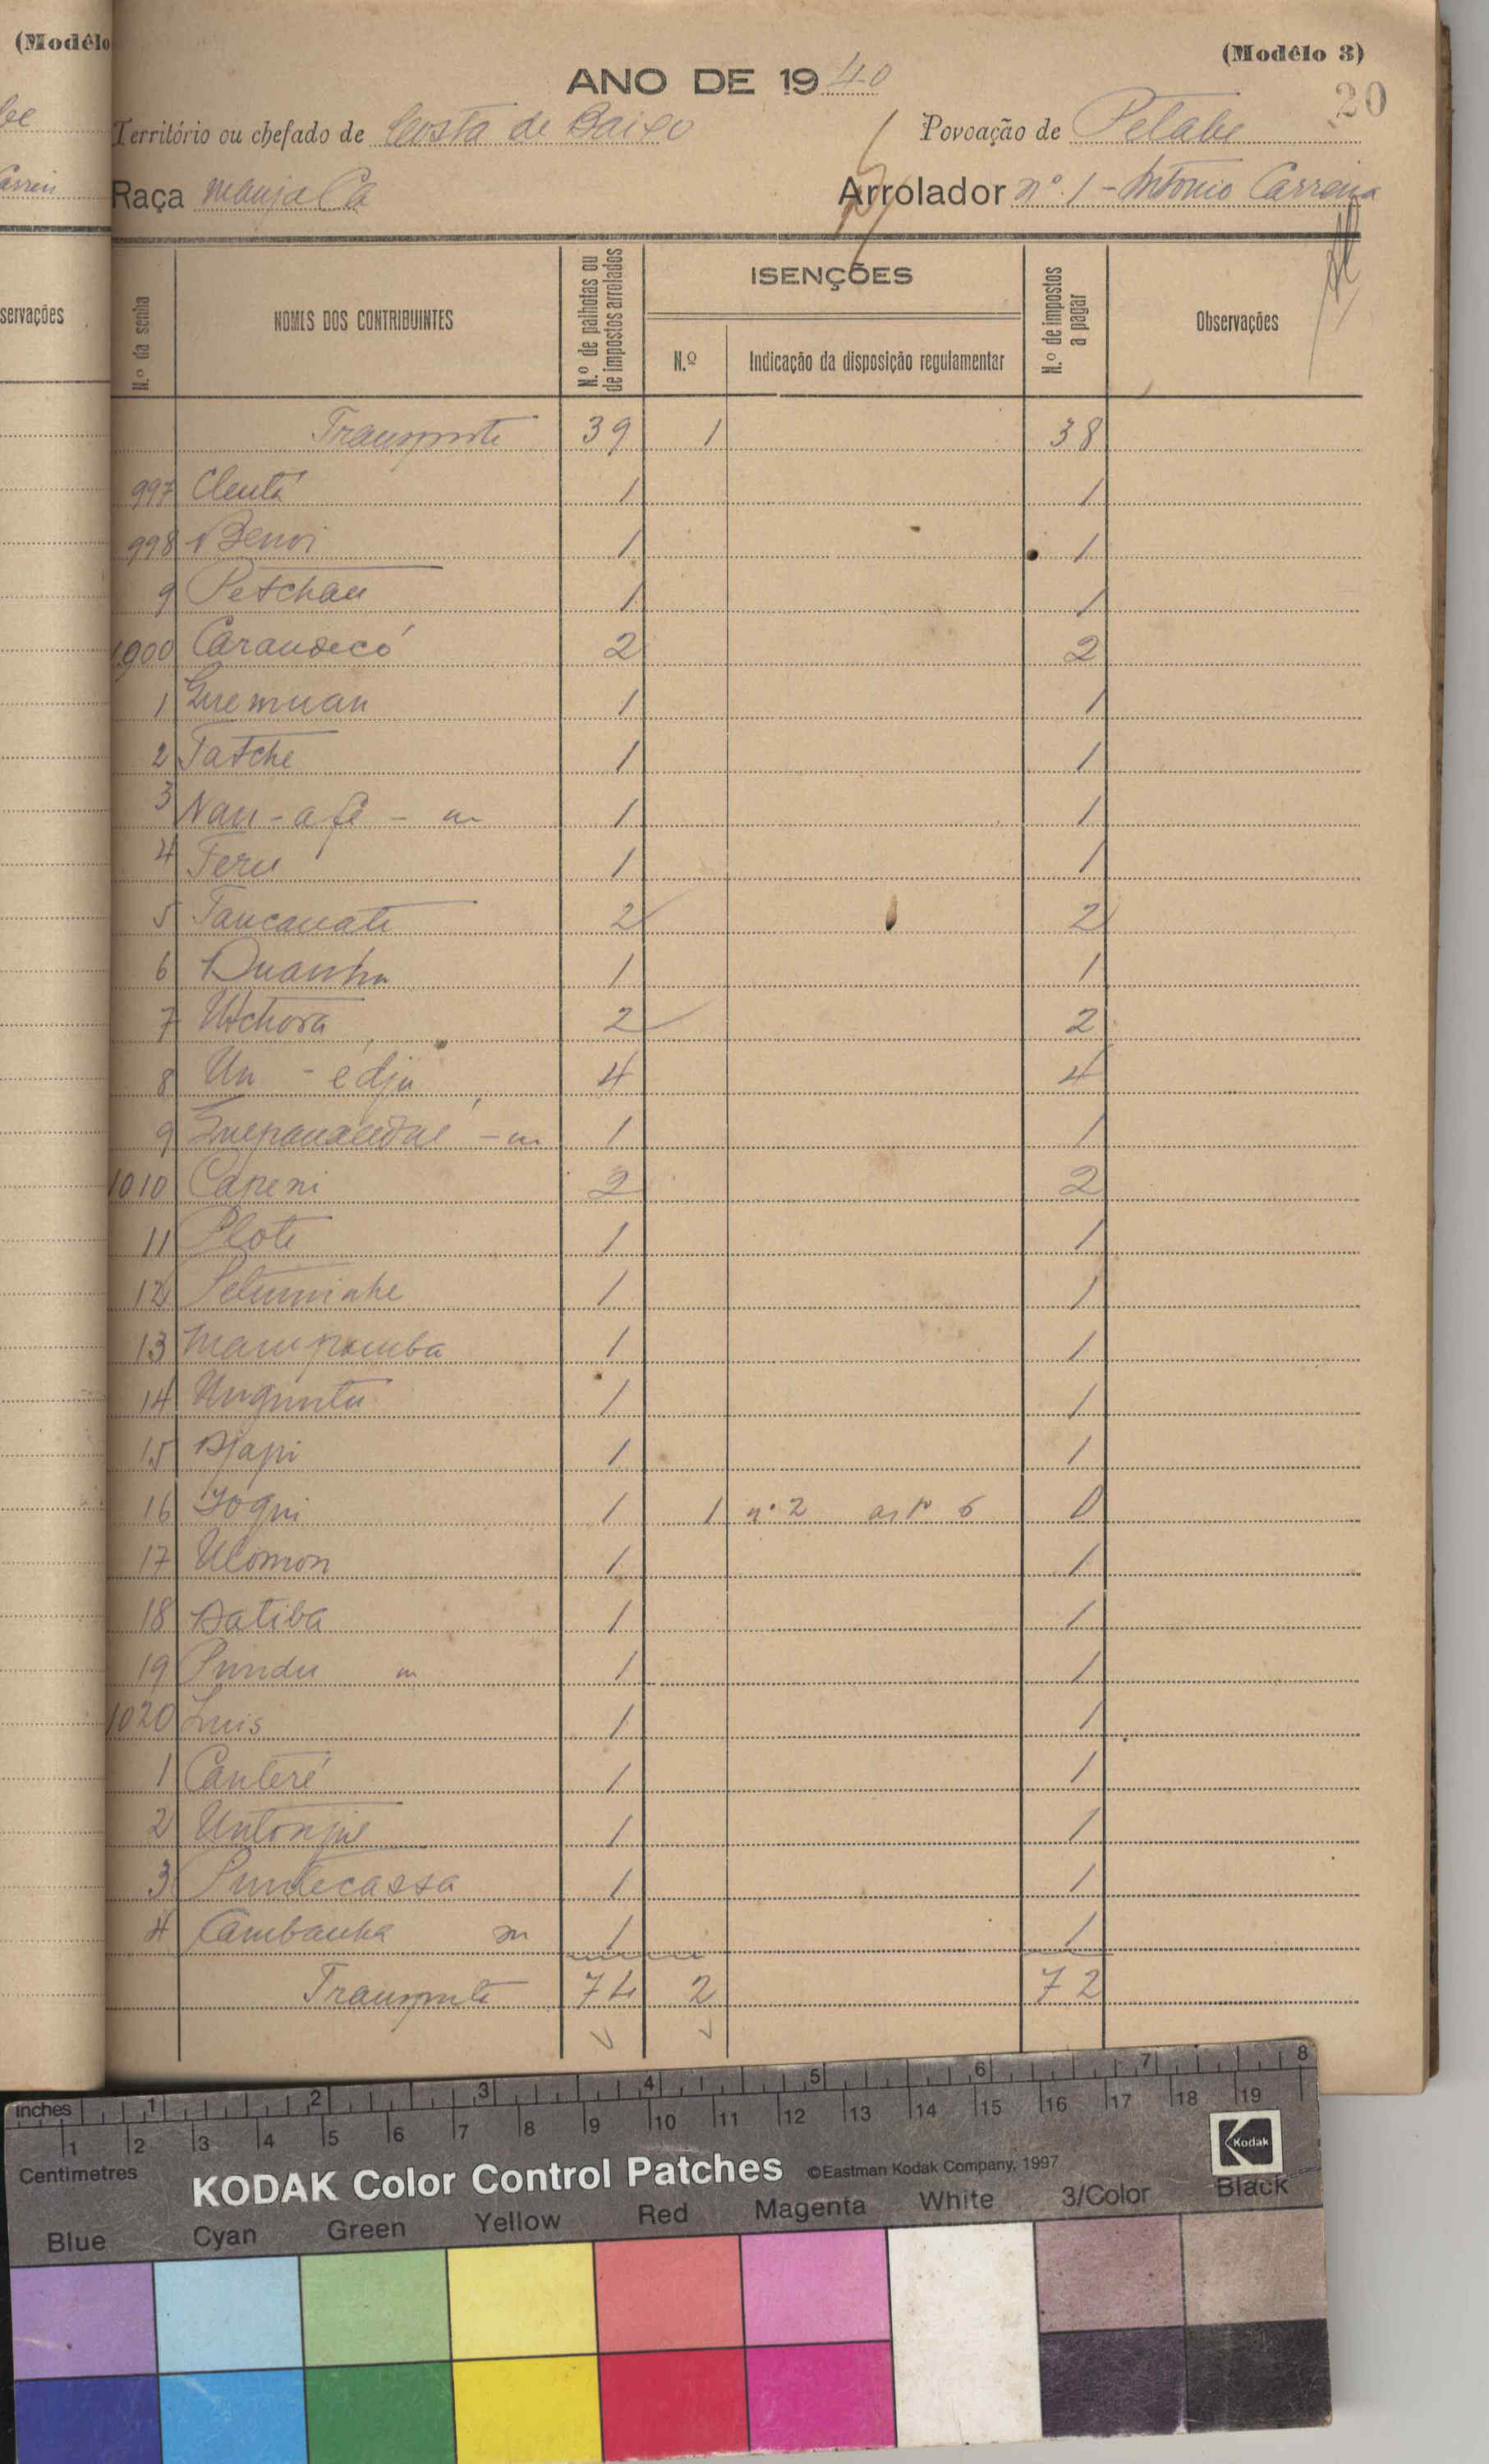 (Modêlo
(Modêlo 3)
20
ANO DE 1940
Território ou chefado de Costa de Baixo Povoação de Pelabe
Raça manjaca Arrolador nº 1 - António Carreira
servações
N.º da senha NOMES DOS CONTRIBUINTES N.º de palhotas ou de impostos arrolados ISENÇÕES N.º Indicação da disposição regulamentar N.º de impostos a pagar Observações
Transporte 39 1 38
997 Clentá 1 1
998 1 1
9 Petchau 1 1
1000 2 2
1 1 1
2 Tatche 1 1
3 Nau-afé - m 1 1
4 Feru 1 1
5 2 2
6 1 1
7 Utchora 2 2
8 Un - edju 4 4
9 - m 1 1
1010 Capeni 2 2
11 Plote 1 1
12 1 1
13 Mampomba 1 1
14 Unguntu 1 1
15 Djapi 1 1
16 1 1 nº 2 artº 6 0
17 Ucomon 1 1
18 Datiba 1 1
19 Pundu m 1 1
1020 Luis 1 1
1 Canteré 1 1
2 1 1
3 Puntecassa 1 1
4 Cambanha m 1 1
Transporte 74 2 72
inches 1 2 3 4 5 6 7 8
1 2 3 4 5 6 7 8 9 10 11 12 13 14 15 16 17 18 19
Centimetres
KODAK Color Control Patches ©Eastman Kodak Company, 1997 Kodak
Blue Cyan Green Yellow Red Magenta White 3/Color Black